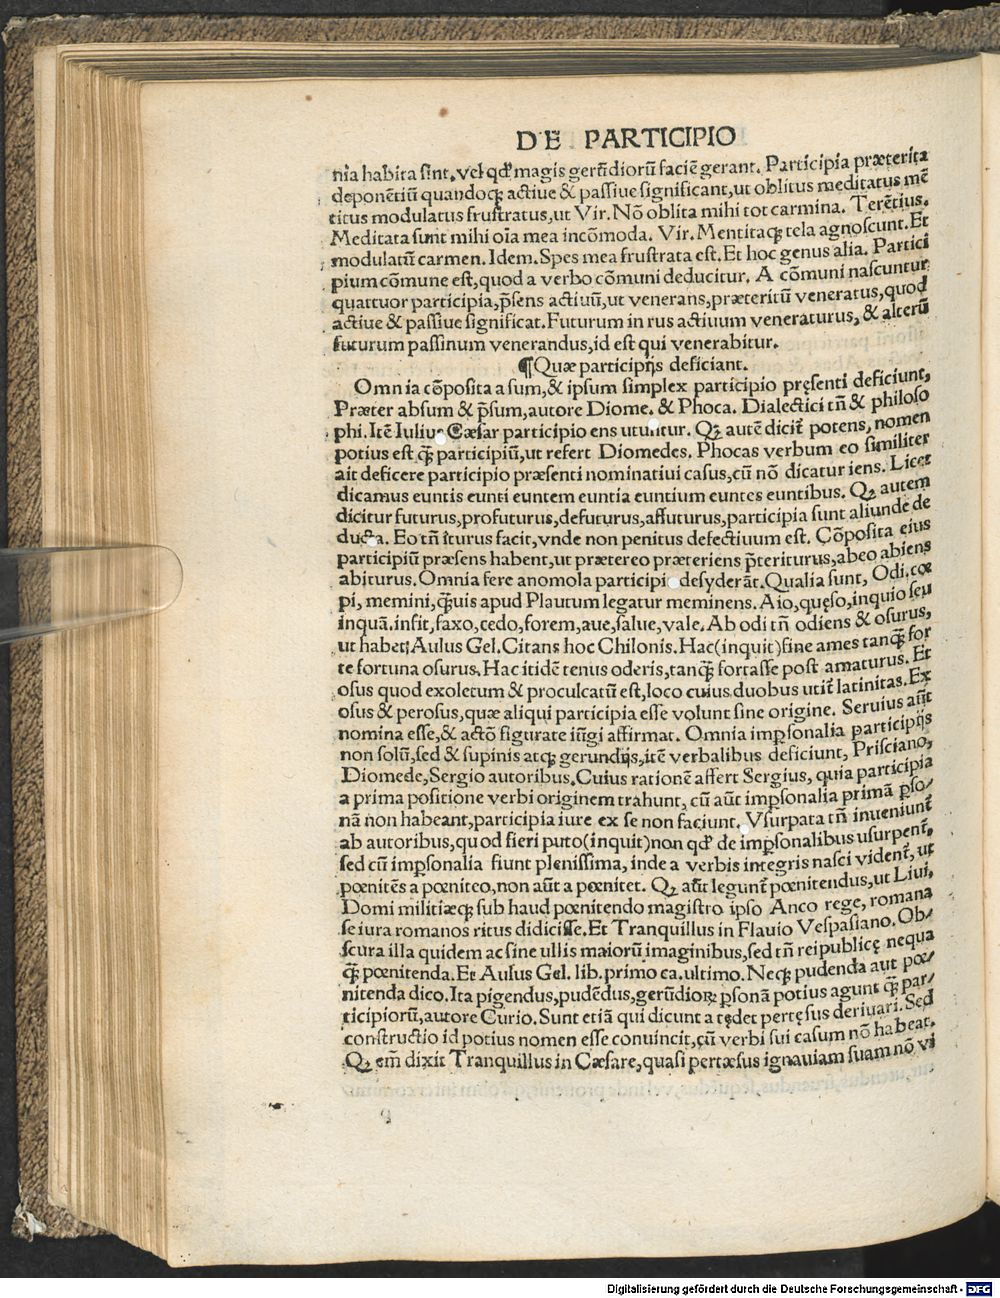 DE PARTICIPIO
nia habita sint, vel qđ magis gerūdiorū faciē gerant. Participia præterita
deponētiū quandoq; actiue & passiue significant, ut oblitus meditatus mē
titus modulatus frustratus, ut Vir. Nō oblita mihi tot carmina. Terētius.
Meditata sunt mihi oīa mea incōmoda. Vir. Mentitaq; tela agnoscunt. Et
modulatū carmen. Idem. Spes mea frustrata est. Et hoc genus alia. Partici
pium cōmune est, quod a verbo cōmuni deducitur. A cōmuni nascuntur
quattuor participia, p̄sens actiuū, ut venerans, præteritū veneratus, quod
actiue & passiue significat. Futurum in rus actiuum veneraturus, & alterū
futurum passiuum venerandus, id est qui venerabitur.
¶Quæ participijs deficiant.
Omnia cōposita a sum, & ipsum simplex participio pręsenti deficiunt,
Præter absum & p̄sum, autore Diome. & Phoca. Dialectici tñ & philoso
phi. Itē Iulius Cæsar participio ens utuntur. Qꝫ autē dicit̄ potens, nomen
potius est q̄ꝫ participiū, ut refert Diomedes. Phocas verbum eo similiter
ait deficere participio præsenti nominatiui casus, cū nō dicatur iens. Licet
dicamus euntis eunti euntem euntia euntium euntes euntibus. Qꝫ autem
dicitur futurus, profuturus, defuturus, affuturus, participia sunt aliunde de
ducta. Eo tñ īturus facit, vnde non penitus defectiuum est. Cōposita eius
participiū præsens habent, ut prætereo præteriens p̄teriturus, abeo abiens
abiturus. Omnia fere anomola participi desyderāt. Qualia sunt, Odi, cœ
pi, memini, q̄ꝫuis apud Plautum legatur meminens. Aio, quęso, inquio seu
inquā, infit, faxo, cedo, forem, aue, salue, vale. Ab odi tñ odiens & osurus,
ut habet Aulus Gel. Citans hoc Chilonis. Hac (inquit) fine ames tanq̄ꝫ for
te fortuna osurus. Hac itidē tenus oderis, tanq̄ꝫ fortasse post amaturus. Et
osus quod exoletum & proculcatū est, loco cuius duobus utit̄ latinitas. Ex
osus & perosus, quæ aliqui participia esse volunt sine origine. Seruius aūt
nomina esse, & actō figurate iūgi affirmat. Omnia imp̱sonalia participijs
non solū, sed & supinis atq; gerundijs, itē verbalibus deficiunt, Prisciano,
Diomede, Sergio autoribus. Cuius rationē affert Sergius, quia participia
a prima positione verbi originem trahunt, cū aūt imp̱sonalia primā p̱so/
nā non habeant, participia iure ex se non faciunt. Vsurpata tñ inueniunt̄
ab autoribus, quod fieri puto (inquit) non qđ de imp̱sonalibus usurpent̄,
sed cū imp̱sonalia fiunt plenissima, inde a verbis integris nasci vident̄, ut
pœnitēs a pœniteo, non aūt a pœnitet. Qꝫ aūt legunt̄ pœnitendus, ut Liui,
Domi militiæq; sub haud pœnitendo magistro ipso Anco rege, romana
se iura romanos ritus didicisse. Et Tranquillus in Flauio Vespasiano. Ob/
scura illa quidem ac sine ullis maiorū imaginibus, sed tñ reipublicę nequa
q̄ꝫ pœnitenda. Et Aulus Gel. lib. primo ca. ultimo. Neq; pudenda aut pœ/
nitenda dico. Ita pigendus, pudēdus, gerūdioꝝ p̱sonā potius agunt q̄ꝫ par/
ticipiorū, autore Curio. Sunt etiā qui dicunt a tędet pertęsus deriuari. Sed
constructio id potius nomen esse conuincit, cū verbi sui casum nō habeat.
Qꝫ em̄ dixit Tranquillus in Cæsare, quasi pertæsus ignauiam suam nō vi
Digitalisierung gefördert durch die Deutsche Forschungsgemeinschaft - DFG